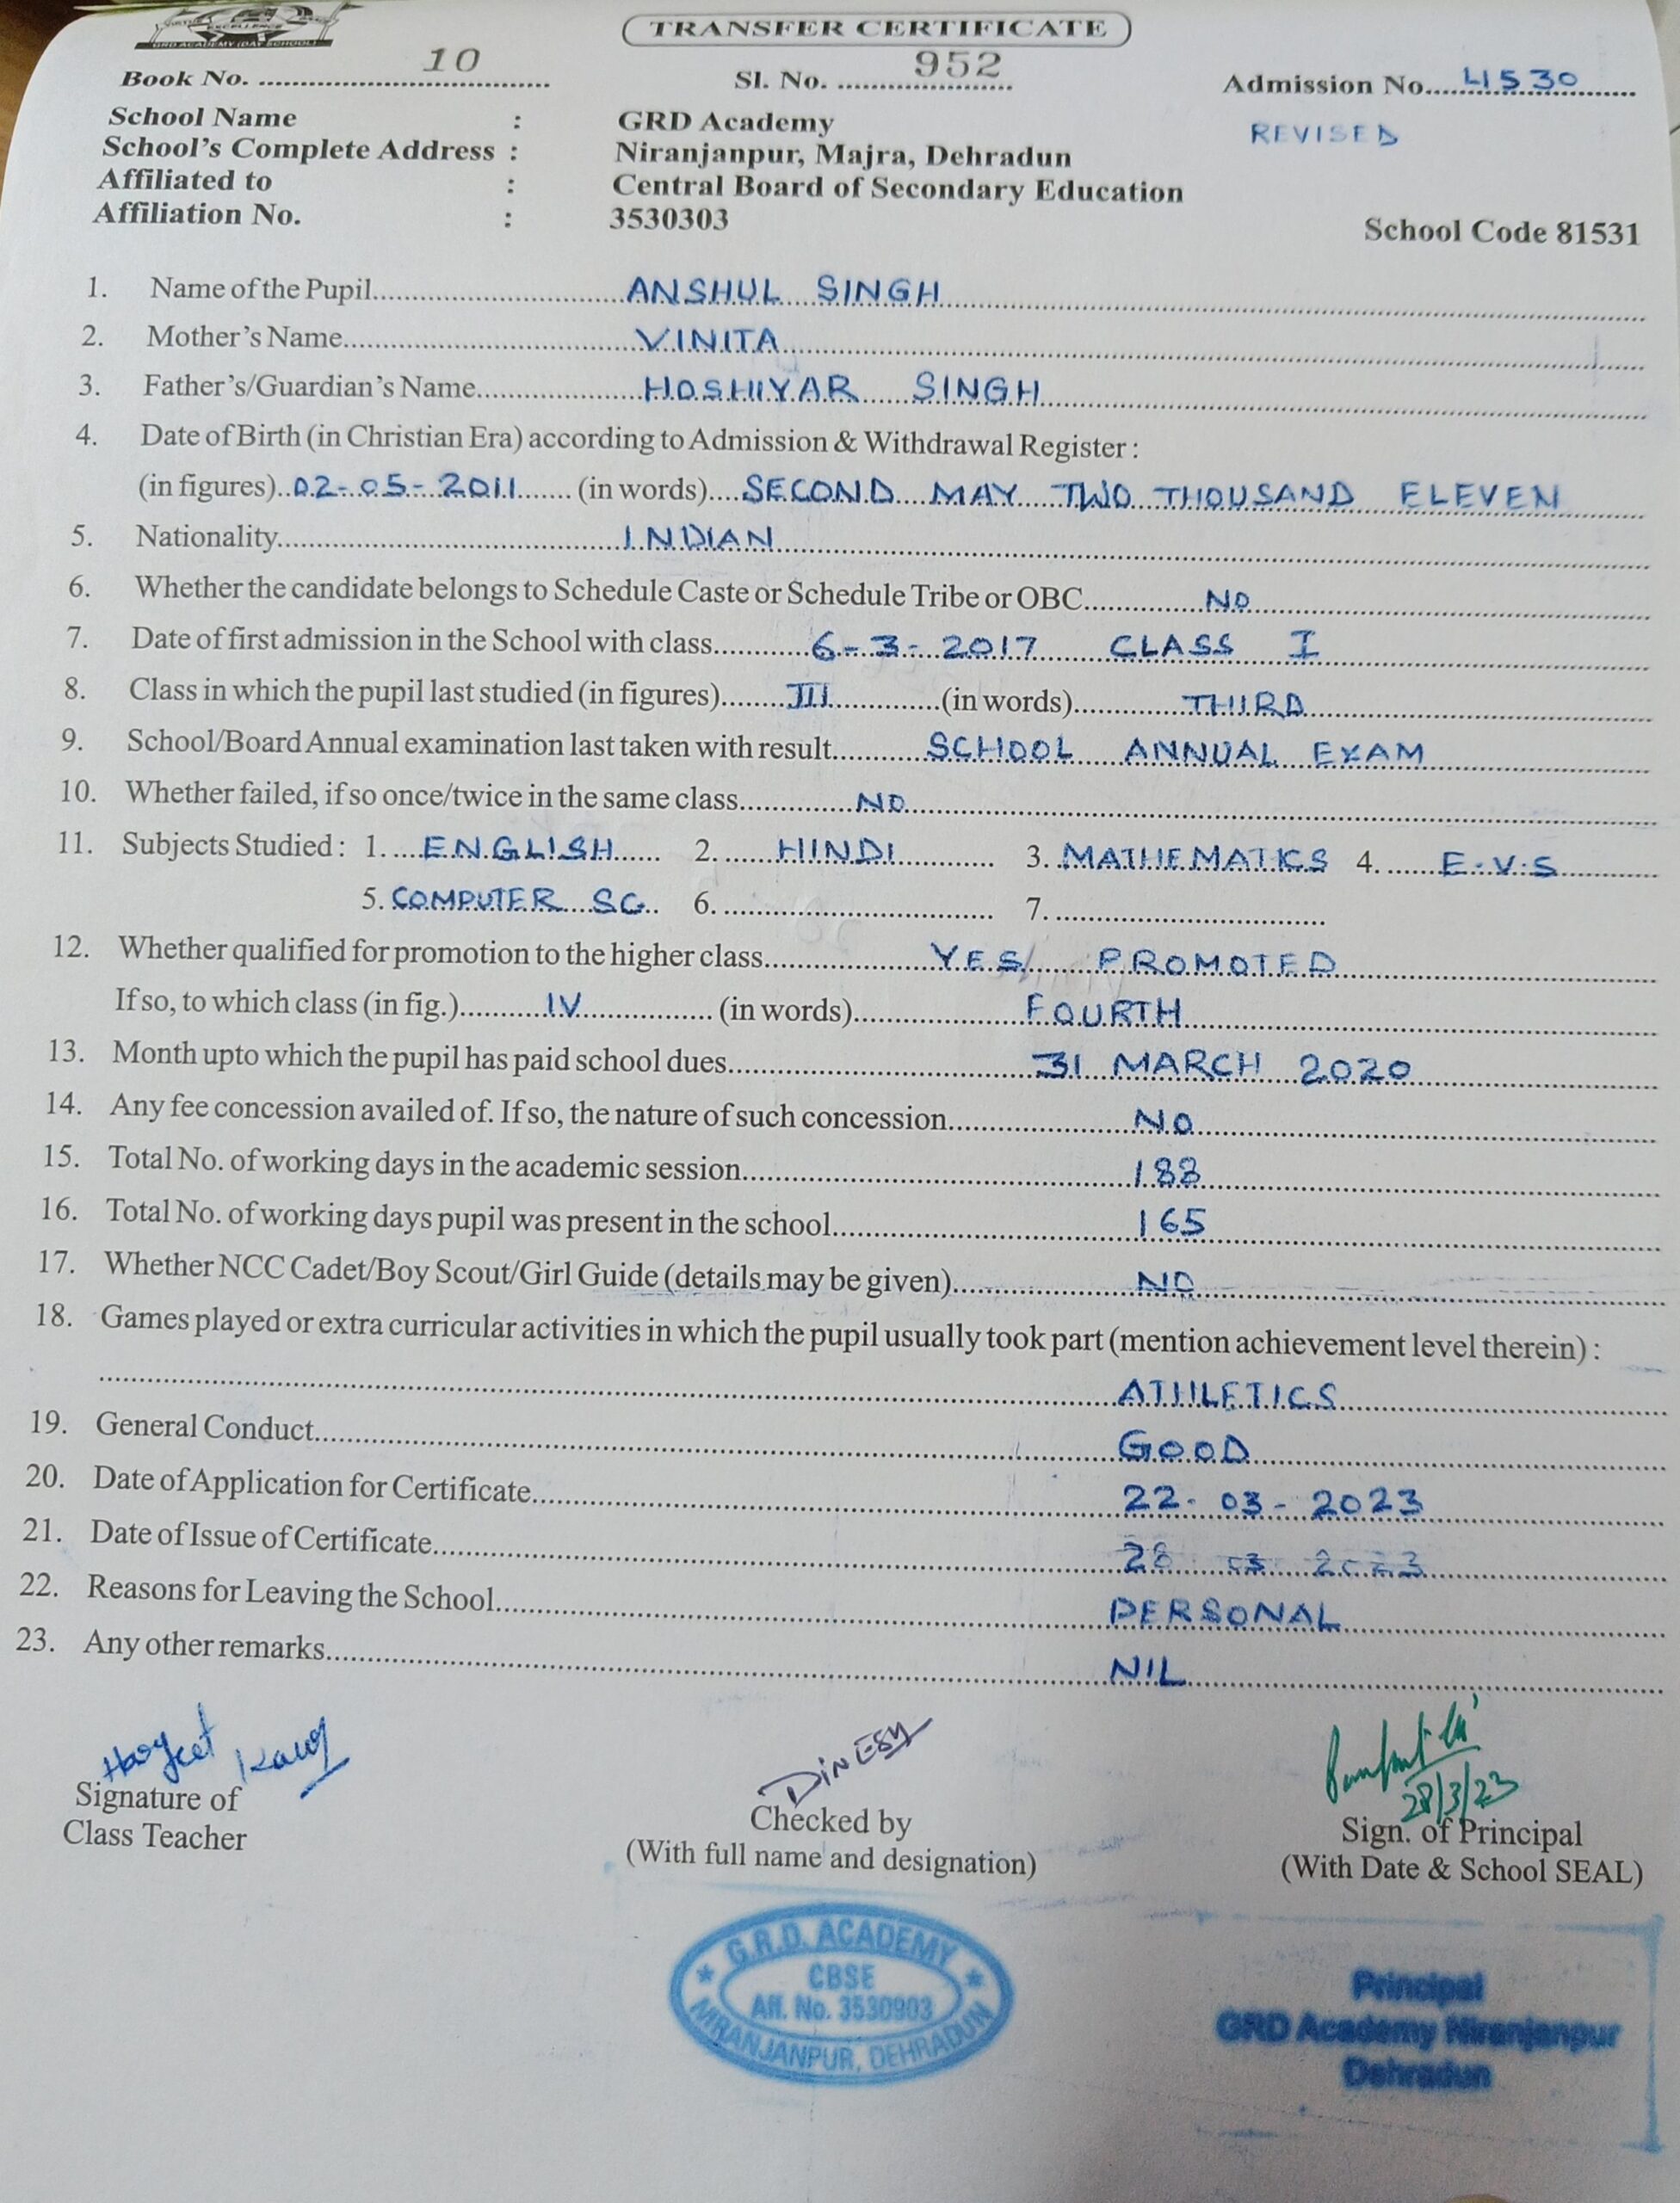 EXCELLENCE
GRD ACADEMY (DAY SCHOOL)
TRANSFER CERTIFICATE
Book No. 10 Sl. No. 952 Admission No. 4530
REVISED
School Name : GRD Academy
School's Complete Address : Niranjanpur, Majra, Dehradun
Affiliated to : Central Board of Secondary Education
Affiliation No. : 3530303 School Code 81531
1. Name of the Pupil ANSHUL SINGH
2. Mother's Name VINITA
3. Father's/Guardian's Name HOSHIYAR SINGH
4. Date of Birth (in Christian Era) according to Admission & Withdrawal Register :
(in figures) 02-05-2011 (in words) SECOND MAY TWO THOUSAND ELEVEN
5. Nationality INDIAN
6. Whether the candidate belongs to Schedule Caste or Schedule Tribe or OBC NO
7. Date of first admission in the School with class 6-3-2017 CLASS I
8. Class in which the pupil last studied (in figures) III (in words) THIRD
9. School/Board Annual examination last taken with result SCHOOL ANNUAL EXAM
10. Whether failed, if so once/twice in the same class NO
11. Subjects Studied : 1. ENGLISH 2. HINDI 3. MATHEMATICS 4. E.V.S
5. COMPUTER SC. 6. 7.
12. Whether qualified for promotion to the higher class YES PROMOTED
If so, to which class (in fig.) IV (in words) FOURTH
13. Month upto which the pupil has paid school dues 31 MARCH 2020
14. Any fee concession availed of. If so, the nature of such concession NO
15. Total No. of working days in the academic session 188
16. Total No. of working days pupil was present in the school 165
17. Whether NCC Cadet/Boy Scout/Girl Guide (details may be given) NO
18. Games played or extra curricular activities in which the pupil usually took part (mention achievement level therein) :
ATHLETICS
19. General Conduct GOOD
20. Date of Application for Certificate 22-03-2023
21. Date of Issue of Certificate 28 03 2023
22. Reasons for Leaving the School PERSONAL
23. Any other remarks NIL
Harjeet Kaur DINESH
28/3/23
Signature of Checked by Sign. of Principal
Class Teacher (With full name and designation) (With Date & School SEAL)
G.R.D. ACADEMY
CBSE
Aff. No. 3530903
NIRANJANPUR, DEHRADUN
Principal
GRD Academy Niranjanpur
Dehradun